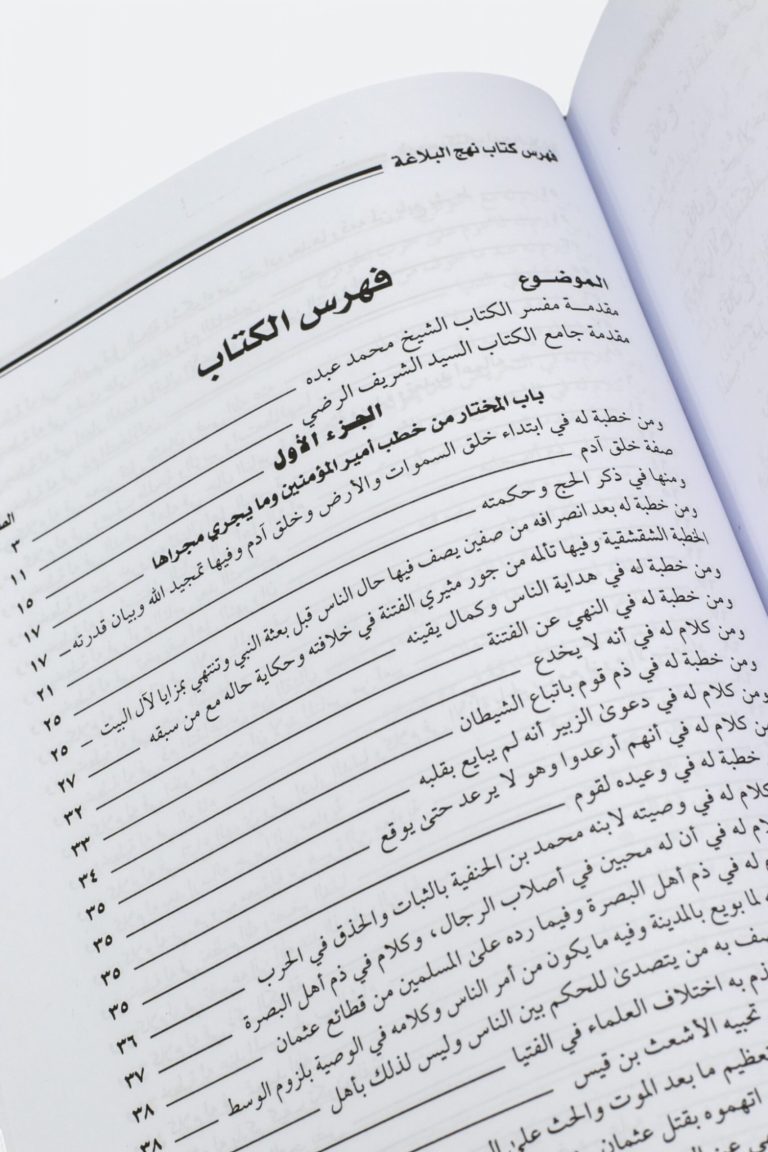 فهرس كتاب نهج البلاغة
فهرس الكتاب
الموضوع
مقدمة مفسر الكتاب الشيخ محمد عبده ٣
مقدمة جامع الكتاب السيد الشريف الرضي ١١
الجزء الأول ١٥
باب المختار من خطب أمير المؤمنين وما يجري مجراها ١٧
ومن خطبة له في ابتداء خلق السموات والأرض وخلق آدم وفيها تمجيد الله وبيان قدرته ١٧
صفة خلق آدم ٢١
ومنها في ذكر الحج وحكمته ٢٥
ومن خطبة له بعد انصرافه من صفين يصف فيها حال الناس قبل بعثة النبي وتنتهي بمزايا لآل البيت ٢٥
الخطبة الشقشقية وفيها تألمه من جور مثيري الفتنة في خلافته وحكاية حاله مع من سبقه ٢٧
ومن خطبة له في هداية الناس وكمال يقينه ٣٢
ومن خطبة له في النهي عن الفتنة ٣٣
ومن كلام له في أنه لا يخدع ٣٤
ومن خطبة له في ذم قوم باتباع الشيطان ٣٥
ومن كلام له في دعوى الزبير أنه لم يبايع بقلبه ٣٥
كلام له في أنهم أرعدوا وهو لا يرعد حتى يوقع ٣٥
خطبة له في وعيده لقوم ٣٥
كلام له في وصيته لابنه محمد بن الحنفية بالثبات والحذق في الحرب ٣٦
له في أن له محبين في أصلاب الرجال، وكلام في ذم أهل البصرة ٣٧
له في ذم أهل البصرة وفيما رده على المسلمين من قطائع عثمان ٣٨
لما بويع بالمدينة وفيه ما يكون من أمر الناس وكلامه في الوصية بلزوم الوسط ٣٨
به من يتصدى للحكم بين الناس وليس لذلك بأهل
به اختلاف العلماء في الفتيا
تجبيه الأشعث بن قيس
تعظيم ما بعد الموت والحث على
اتهموه بقتل عثمان